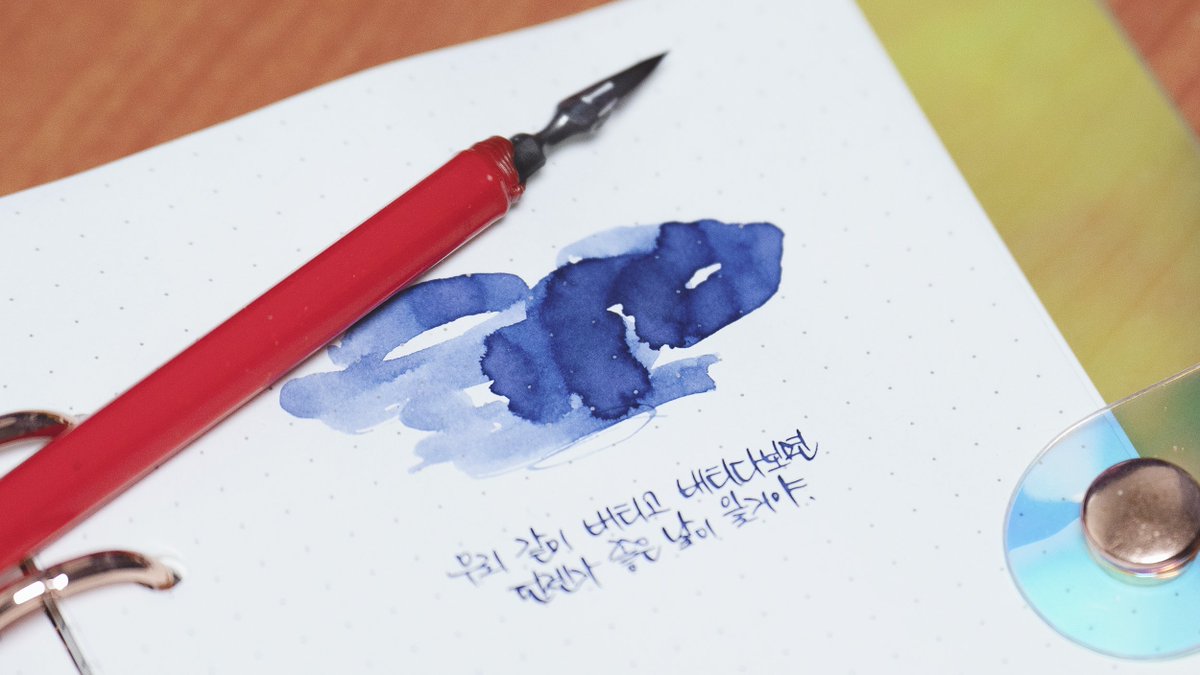 우리 같이 버티고 버티다보면
언젠가 좋은 날이 올거야.